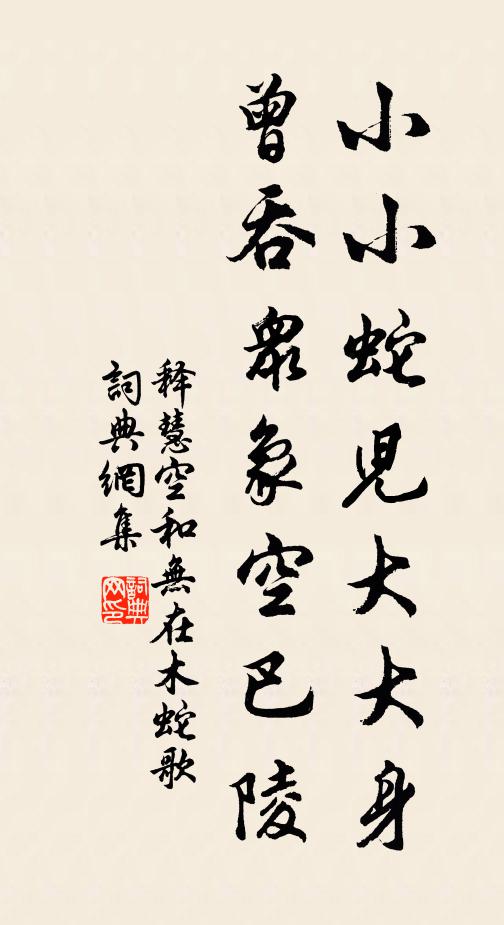 小小蛇児大大身
曾吞眾象空巴陵
释慧空和無在木蛇歌
詞典網集
詞典网印